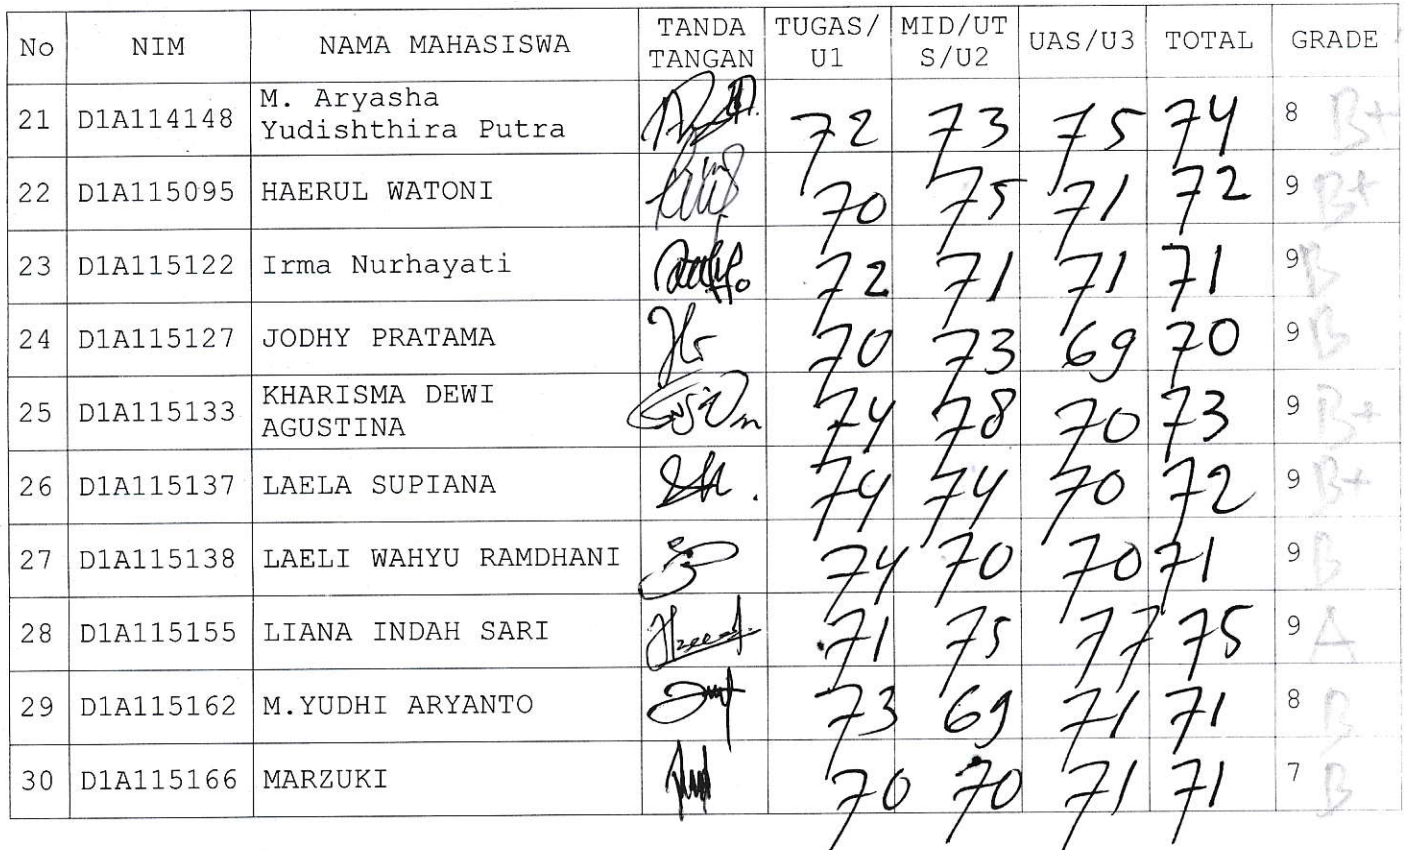 No NIM NAMA MAHASISWA TANDA TANGAN TUGAS/U1 MID/UTS/U2 UAS/U3 TOTAL GRADE
21 D1A114148 M. Aryasha Yudishthira Putra 72 73 75 74 8 B+
22 D1A115095 HAERUL WATONI 70 75 71 72 9 B+
23 D1A115122 Irma Nurhayati 72 71 71 71 9 B
24 D1A115127 JODHY PRATAMA 70 73 69 70 9 B
25 D1A115133 KHARISMA DEWI AGUSTINA 74 78 70 73 9 B+
26 D1A115137 LAELA SUPIANA 74 74 70 72 9 B+
27 D1A115138 LAELI WAHYU RAMDHANI 74 70 70 71 9 B
28 D1A115155 LIANA INDAH SARI 71 75 77 75 9 A
29 D1A115162 M.YUDHI ARYANTO 73 69 71 71 8 B
30 D1A115166 MARZUKI 70 70 71 71 7 B